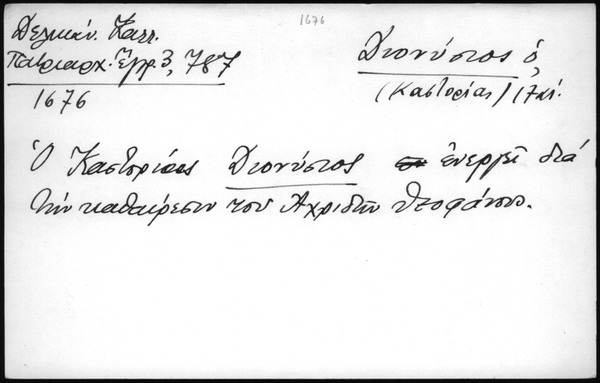 1676
Δελικάν. Κατ.
Πατριαρχ. Ἔγγρ. 3, 787
1676
Διονύσιος ὁ,
(Καστορίας) 17 αἰ.
Ὁ Καστορίας Διονύσιος ἐνεργεῖ διά
τὴν καθαίρεσιν τοῦ Ἀχριδῶν Θεοφάνους.